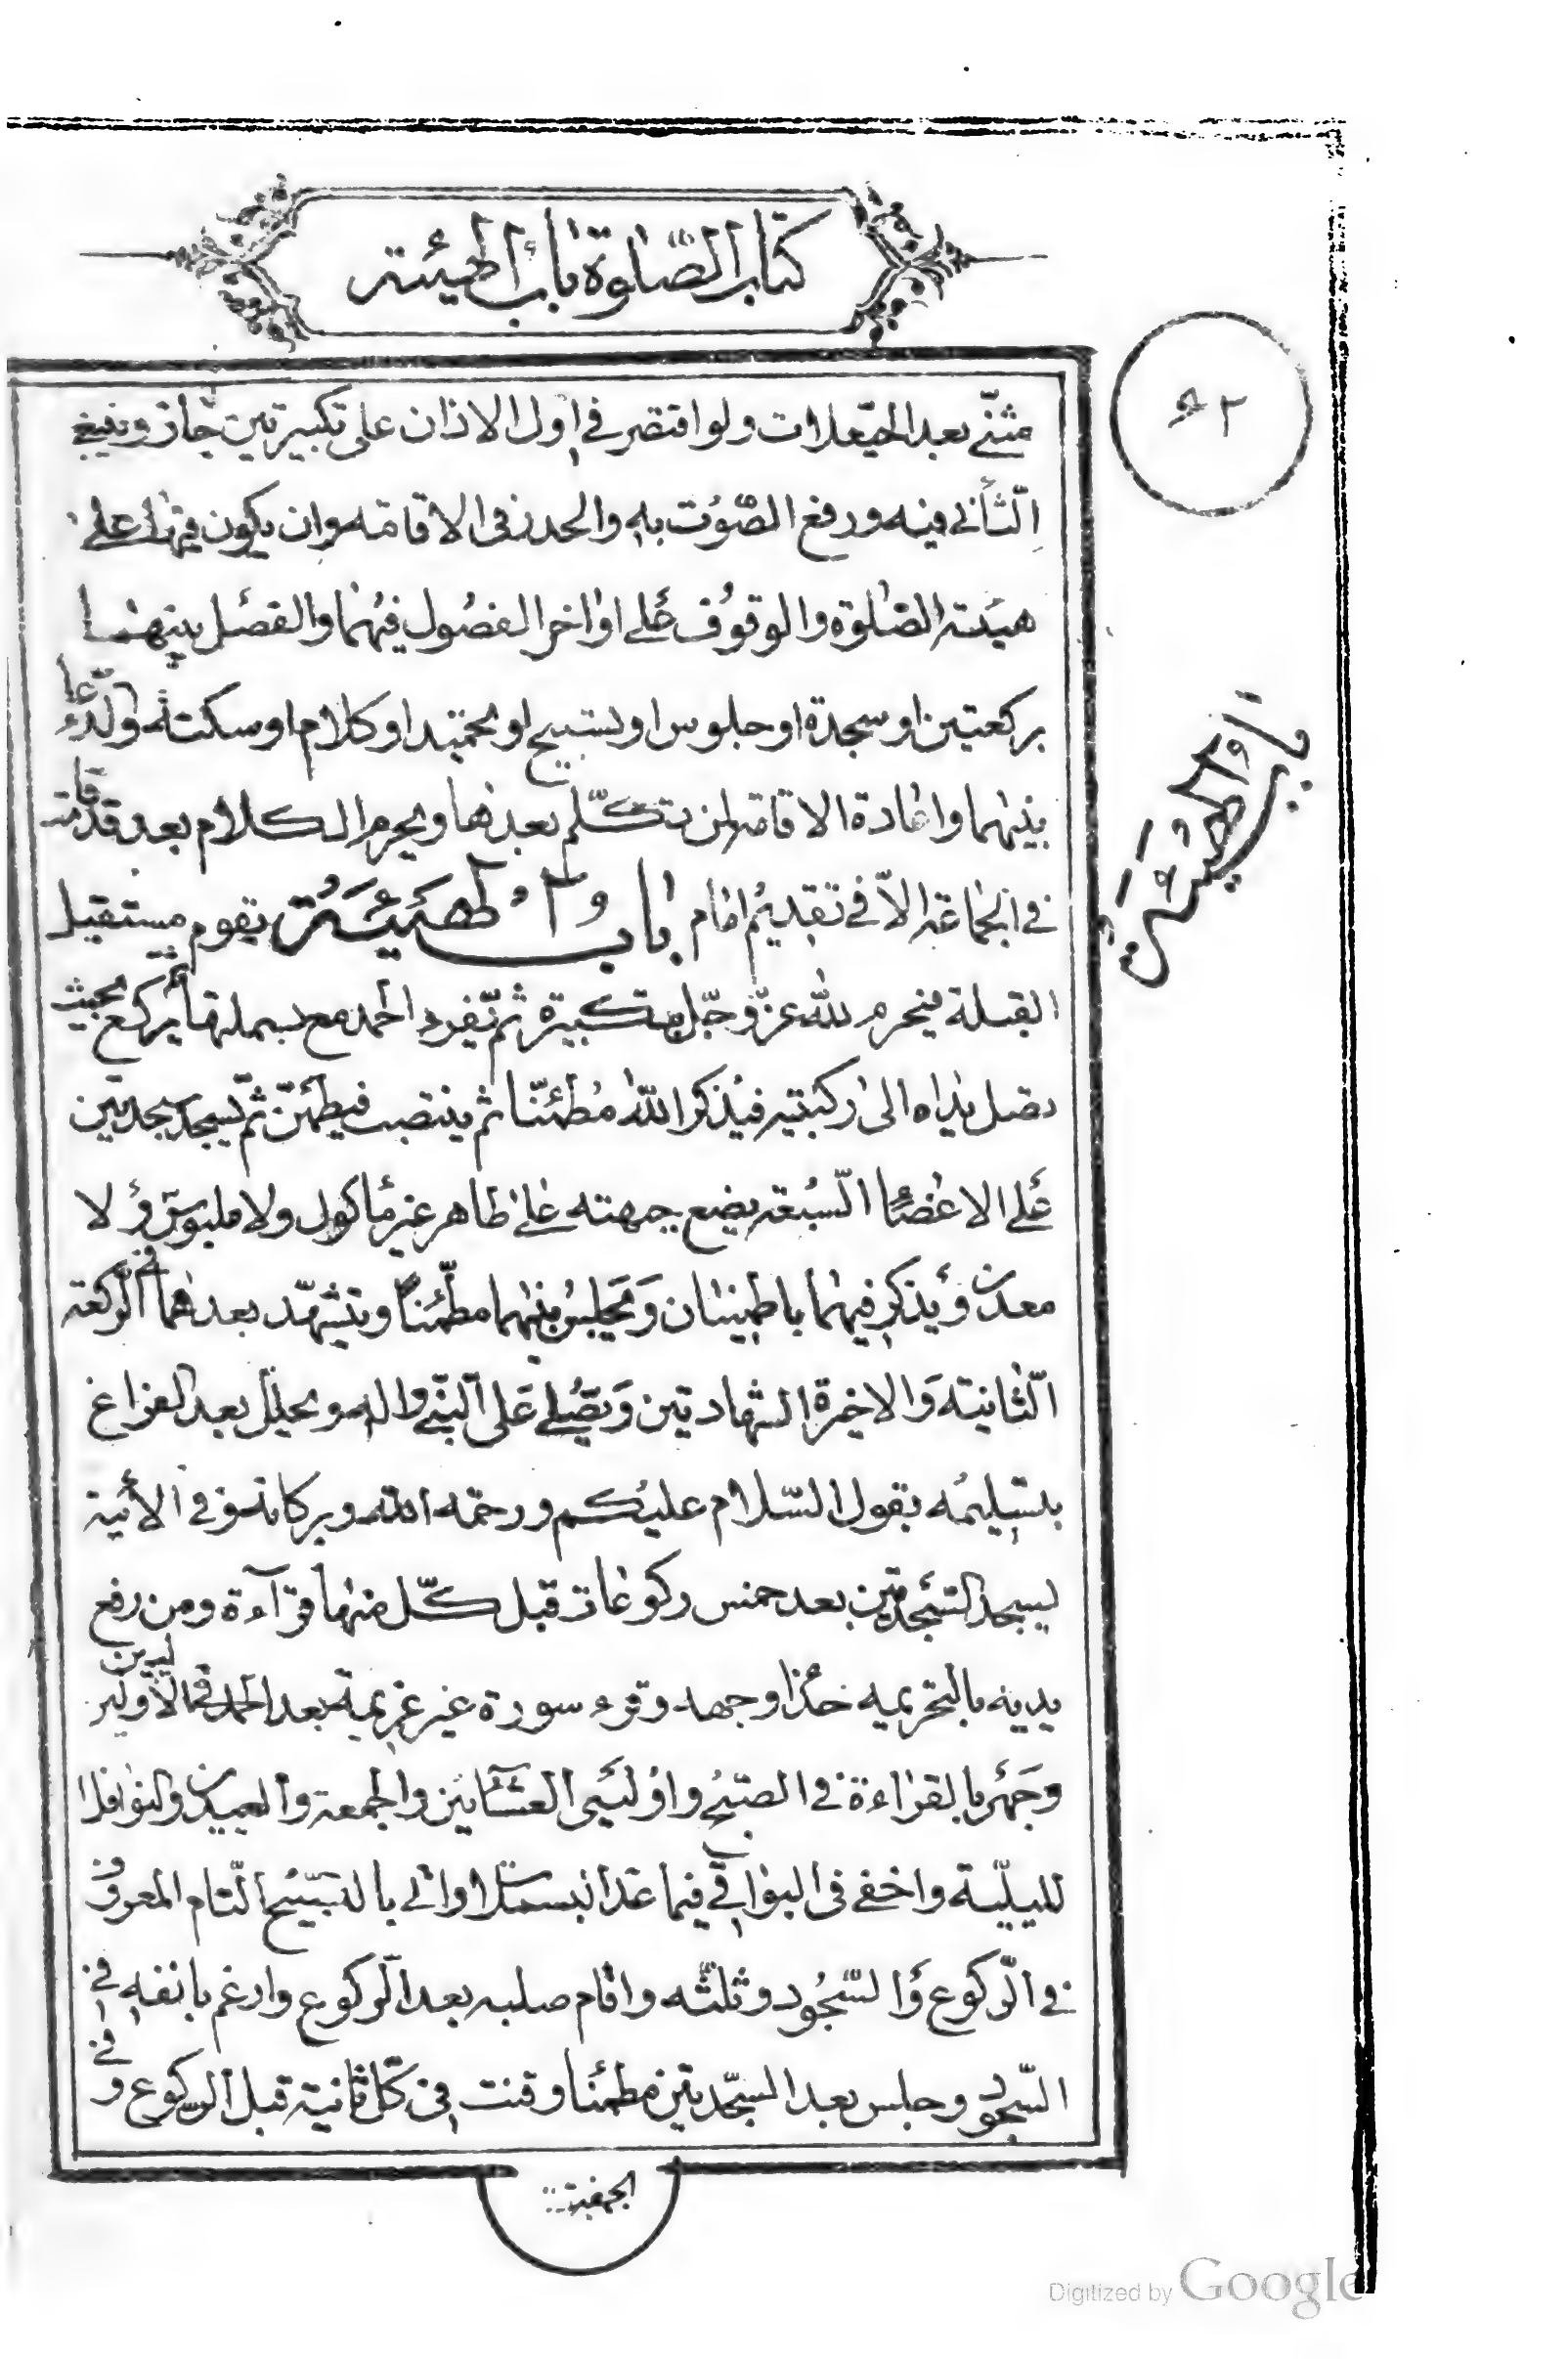 كتاب الصلوة باب الهيئة
٥٢
مثنّى بعد الحيّعلات ولو اقتصر في اول الاذان على تكبيرتين جاز وينبغي
التّأنى فيه ورفع الصّوت به والحدر فى الاقامة وان يكون فيهما على
هيئة الصّلوة والوقوف على اواخر الفصول فيهما والفصل بينهما
بركعتين او سجدة او جلوس او تسبيح او تحميد او كلام او سكتة والدّعاء
بينهما واعادة الاقامة لمن تكلّم بعدها ويحرم الكلام بعد قد قامت
في الجماعة الاّ في تقديم امام باب الهيئة يقوم مستقبل
باب الهيئة
القبلة فيحرم لله عزّ وجلّ بتكبيرة ثمّ يقرء الحمد مع بسملتها ثم يركع بحيث
تصل يداه الى ركبتيه فيذكر الله مطمئنّا ثم ينتصب فيطمئنّ ثمّ يسجد سجدتين
على الاعضاء السّبعة يضع جبهته على طاهر غير مأكول ولا ملبوس ولا
معدن ويذكر فيهما باطمينان ويجلس بينهما مطمئنا ويتشهّد بعدهما في الرّكعة
الثانية والاخيرة الشهادتين ويصلى على النبّي واله ويحلل بعد الفراغ
بتسليمه بقول السّلام عليكم ورحمة الله وبركاته وفي الأية
يسجد السّجدتين بعد خمس ركوعات قبل كلّ منها قرآءة ومن رفع
يديه بالتحريمه حذا وجهه وقرء سورة غير عزيمة بعد الحمد في الاوليين
وجهر بالقراءة في الصّبح واوليى العشائين والجمعة والعيدين والنوافل
لليليّة واخفى فى البواقي فيما عدا البسملات واتى بالتسبيح التّام المعروف
في الرّكوع والسّجود وثلثه واقام صلبه بعد الركوع وارغم بانفه في
السّجود وجلس بعد السجدتين مطمئنا وقنت في كلّ ثانية قبل الركوع وفي
الجمعة
Digitized by Google